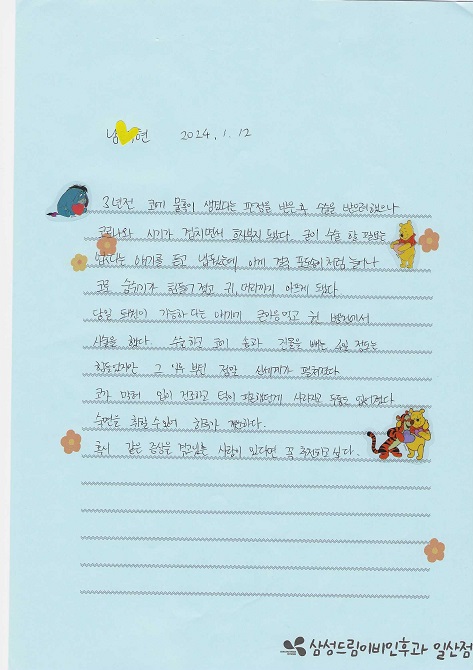 남 현 2024. 1. 12
3년전 코에 물혹이 생겼다는 판정을 받은 후 수술을 받으려했으나
코로나와 시기가 겹치면서 흐지부지 됐다. 굳이 수술 할 필요는
없다는 얘기를 듣고 냅뒀는데 이게 점점 포도송이처럼 늘어나
코로 숨쉬기가 힘들어 졌고 귀, 머리까지 아프게 됐다.
당일 퇴원이 가능하다는 얘기에 큰마음 먹고 본 병원에서
수술을 했다. 수술하고 코에 솜과 진물을 빼는 4일 정도는
힘들었지만 그 이후 부턴 정말 신세계가 펼쳐졌다
코가 막혀 입이 건조하고 턱이 피곤했던게 사라지고 두통도 없어졌다
숙면을 취할 수 있어 하루가 개운하다.
혹시 같은 증상을 겪고있는 사람이 있다면 꼭 추천하고 싶다.
삼성드림이비인후과 일산점